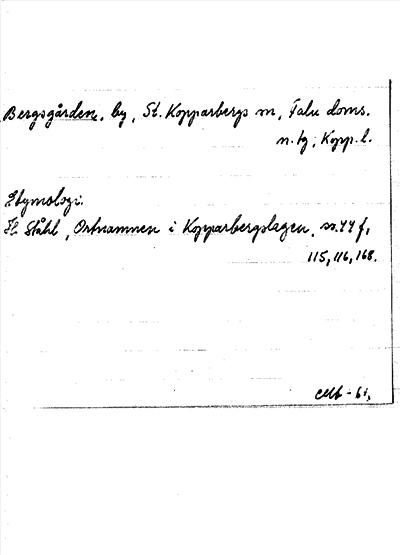 Bergsgården, by, St. Kopparbergs sn, Falu doms.
n. tg, Kopp. l.
Etymologi:
H. Ståhl, Ortnamnen i Kopparbergslagen, ss. 44 f,
115, 116, 168.